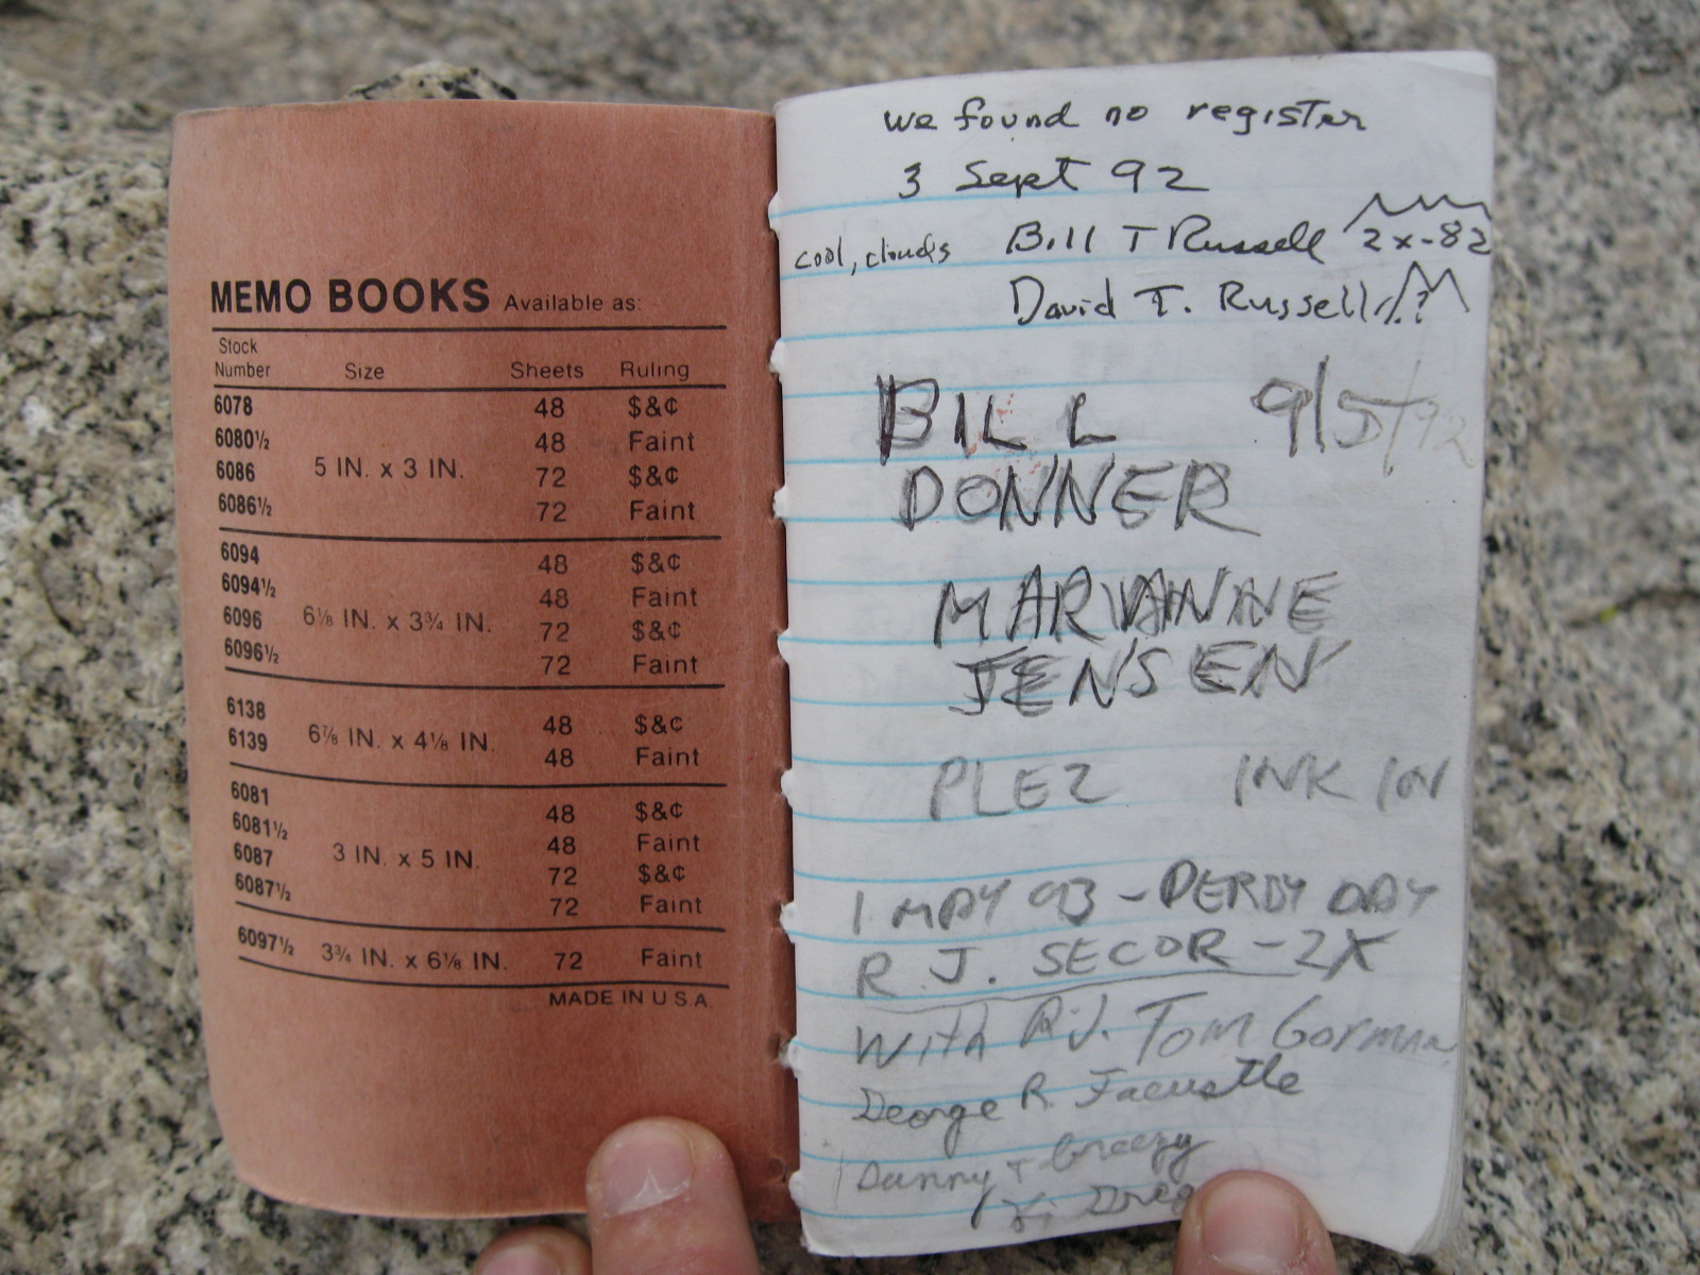 MEMO BOOKS Available as:
Stock
Number Size Sheets Ruling
6078 48 $&¢
6080½ 48 Faint
5 IN. x 3 IN.
6086 72 $&¢
6086½ 72 Faint
6094 48 $&¢
6094½ 48 Faint
6⅛ IN. x 3¾ IN.
6096 72 $&¢
6096½ 72 Faint
6138 48 $&¢
6⅞ IN. x 4⅛ IN.
6139 48 Faint
6081 48 $&¢
6081½ 48 Faint
3 IN. x 5 IN.
6087 72 $&¢
6087½ 72 Faint
6097½ 3¾ IN. x 6⅛ IN. 72 Faint
MADE IN U.S.A.
we found no register
3 Sept 92
cool, clouds Bill T Russell 2x-82
David T. Russell
BILL 9/5/92
DONNER
MARYANNE
JENSEN
PLEZ INK IN
1 MAY 93 - DERBY DAY
R. J. SECOR - 2X
With R.J. Tom Gorman
George R.
Danny + Greezy